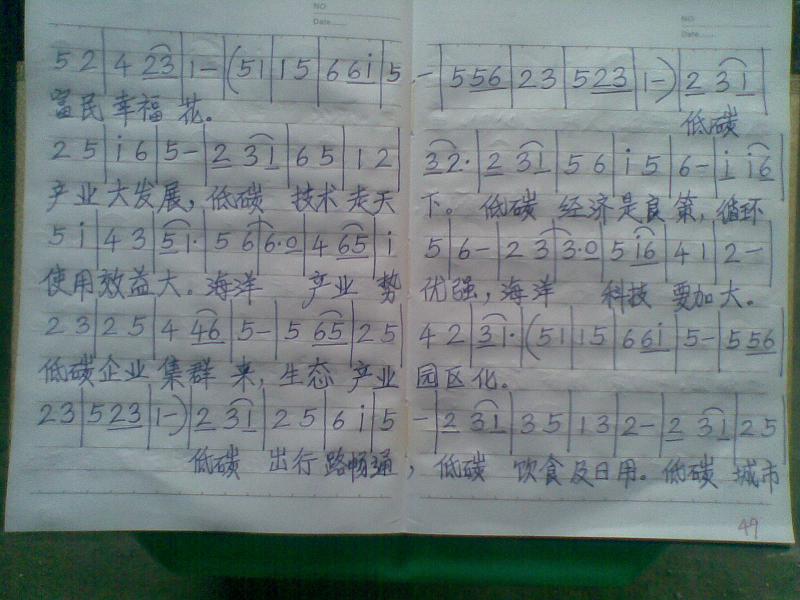 NO
Date
NO
Date
5 2 | 4 2 3 | 1 – ( 5 1 | 1 5 | 6 6 i | 5 – | 5 5 6 | 2 3 | 5 2 3 | 1 – ) | 2 3 1 |
富民幸福花。 低碳
2 5 | i 6 | 5 – | 2 3 1 | 6 5 | 1 2 | 3 2· | 2 3 1 | 5 6 | i 5 | 6 – | i i 6
产业大发展，低碳 技术走天下。低碳 经济是良策，循环
5 i | 4 3 | 5 1· | 5 6 | 6·0 | 4 6 5 | i | 5 | 6 – | 2 3 | 3·0 | 5 i 6 | 4 1 | 2 –
使用效益大。海洋 产业 势优强，海洋 科技 要加大。
2 3 | 2 5 | 4 4 6 | 5 – | 5 6 5 | 2 5 | 4 2 | 3 1· ( 5 1 | 1 5 | 6 6 i | 5 – | 5 5 6
低碳企业集群来，生态产业园区化。
2 3 | 5 2 3 | 1 – ) | 2 3 1 | 2 5 | 6 i | 5 – | 2 3 1 | 3 5 | 1 3 | 2 – | 2 3 1 | 2 5
低碳 出行路畅通，低碳 饮食及日用。低碳 城市
49